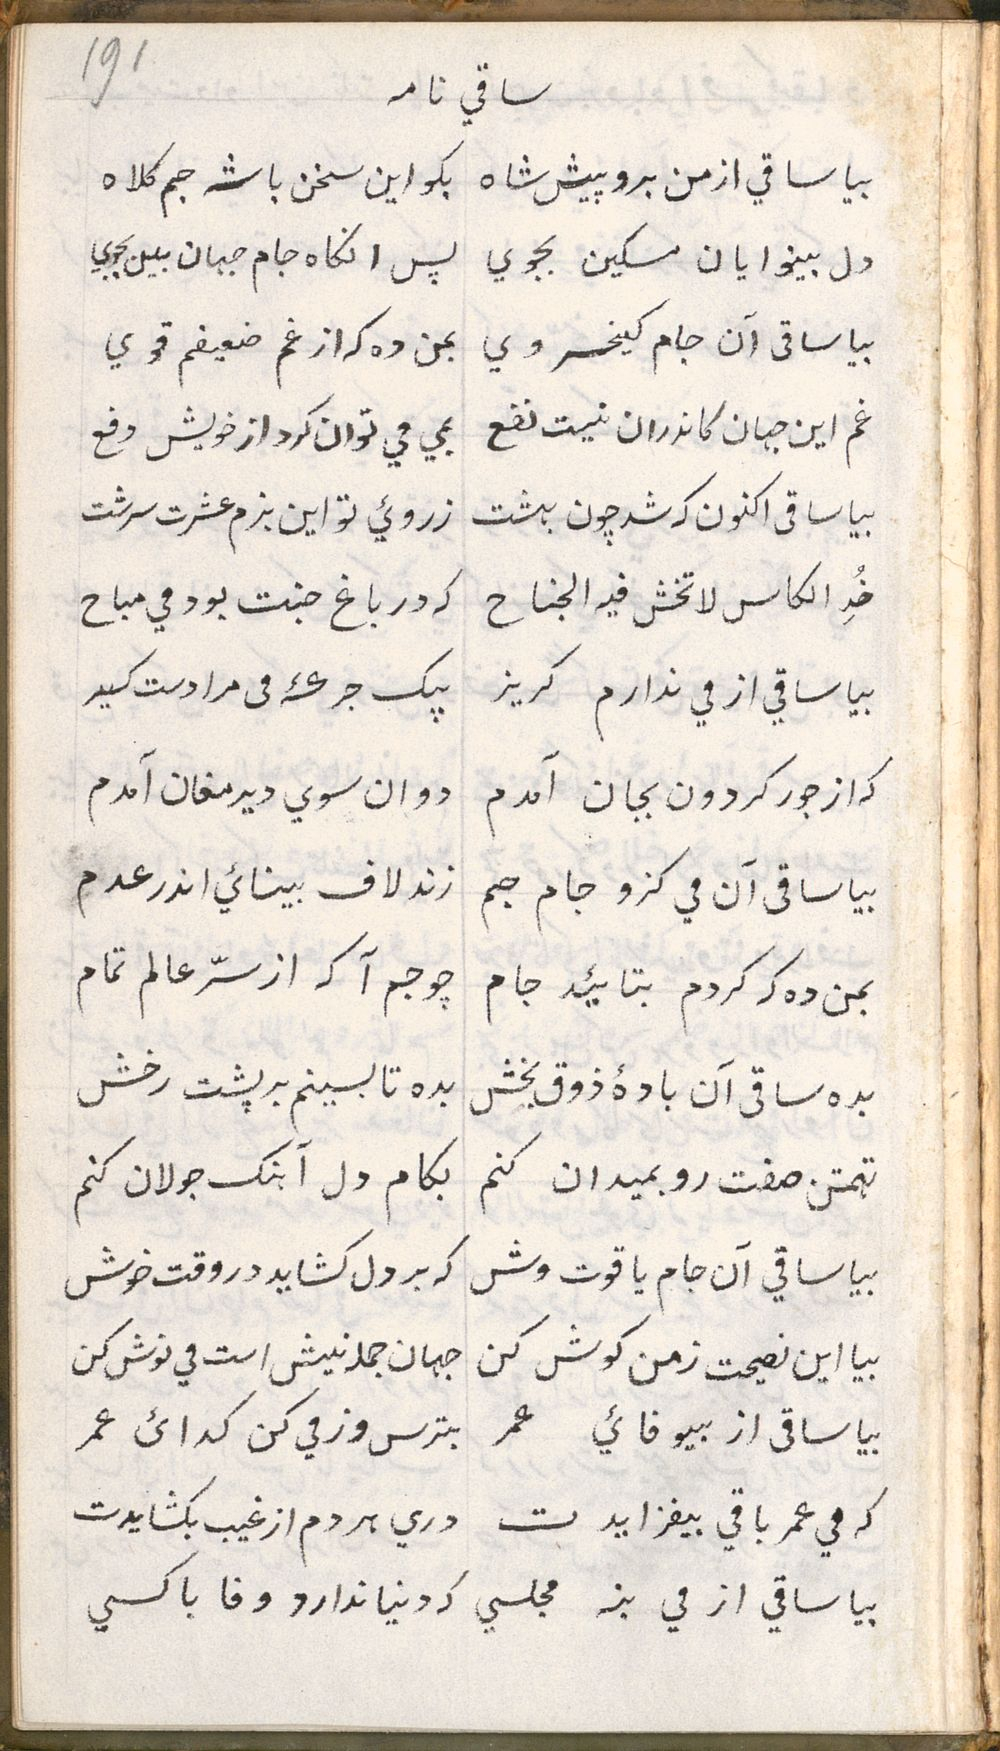 ۱۹۱
ساقي نامه
بيا ساقي از من برو پيش شاه بكو اين سخن با شه جم كلاه
دل بينوايان مسكين بجوي پس انكاه جام جهان بين بجوي
بيا ساقى آن جام كيخسروي بمن ده كه از غم ضعيفم قوي
غم اين جهان كاندران نيست نفع بمي مي توان كرد از خويش دفع
بيا ساقى اكنون كه شد چون بهشت زروئي تو اين بزم عشرت سرشت
خُذِ الكاس لا تخش فيه الجناح كه در باغ جنت بود مي مباح
بيا ساقي از مي ندارم كريز بيك جرعهٔ مى مرا دست كير
كه از جور كردون بجان آمدم دوان سوي دير مغان آمدم
بيا ساقى آن مي كزو جام جم زند لاف بينائي اندر عدم
بمن ده كه كردم بتائيد جام چو جم آكه از سرّ عالم تمام
بده ساقى آن بادهٔ ذوق بخش بده تا بسينم بر پشت رخش
تهمتن صفت رو بميدان كنم بكام دل آهنك جولان كنم
بيا ساقي آن جام ياقوت وش كه بر دل كشايد در وقت خوش
بيا اين نصيحت ز من كوش كن جهان جمله نيش است مي نوش كن
بيا ساقى از بيوفائي عمر بترس و ز مي كن كدائ عمر
كه مي عمر باقي بيفزايدت دري هر دم از غيب بكشايدت
بيا ساقي از مي بنه مجلسي كه دنيا ندارد وفا با كسي